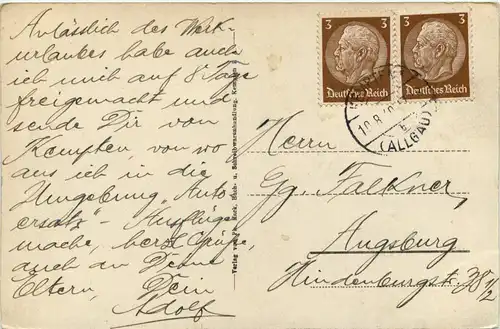 Anlässlich des Werk-
urlaubes habe auch
ich mich auf 8 Tage
freigemacht und
sende Dir von
Kempten, von wo
aus ich in die
Umgebung „Auto-
ersatz“-Ausflüge
mache, herzl. Grüße,
auch an Deine
Eltern, Dein
Adolf
Verlag von
Buch- u. Schreibwarenhandlung, Kempten
3 3
Deutsches Reich
3
Deutsches Reich
10.8.
(ALLGÄU)
Herrn
Gg. Falkner,
Augsburg
Hindenburgstr. 38 1/2